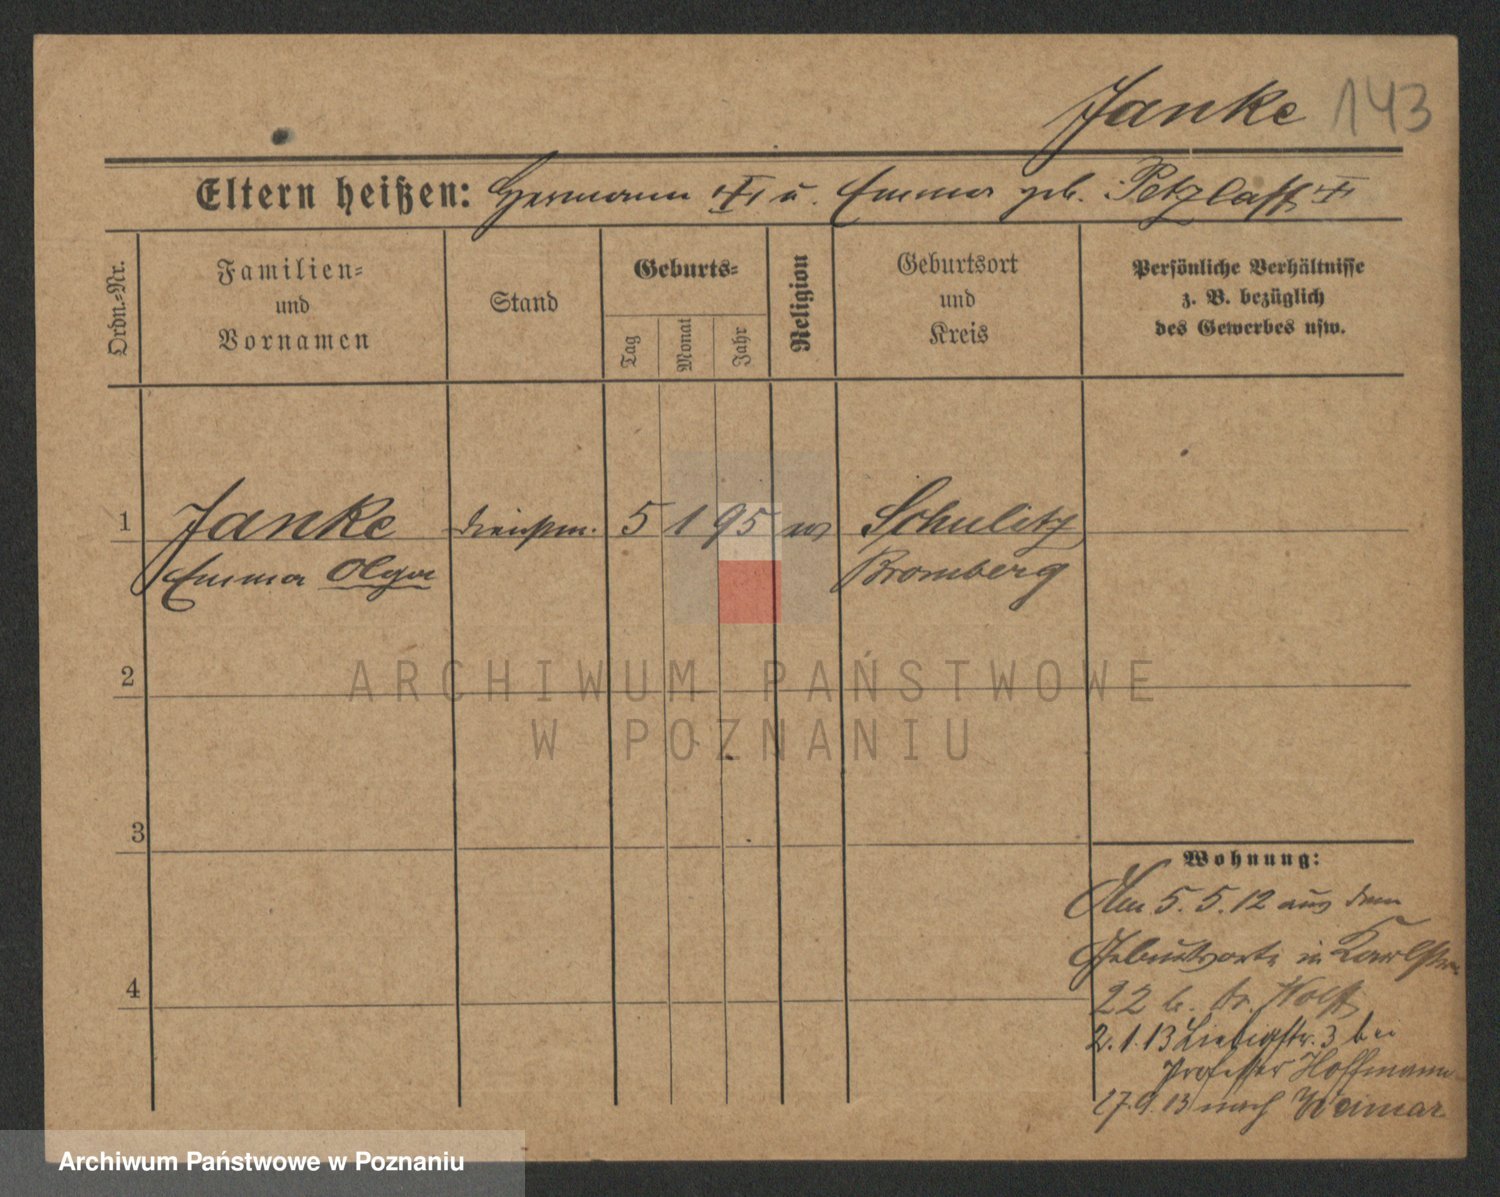 Janke 143
Eltern heißen: Hermann u. Emma geb. Petzlaff
Ordn.=Nr.
Familien=
und
Vornamen
Stand
Geburts=
Tag
Monat
Jahr
Religion
Geburtsort
und
Kreis
Persönliche Verhältnisse
z. B. bezüglich
des Gewerbes usw.
1 Janke Dienstm. 5 1 95 Schulitz
Emma Olga Bromberg
2
3
4
Wohnung:
Am 5. 5. 12 aus dem
Geburtsorte in Karlstr.
22 b. Dr. Wolff
2.1.13 Liebigstr. 3 bei
Professor Hoffmann
17.9.13 nach Weimar
ARCHIWUM PAŃSTWOWE
W POZNANIU
Archiwum Państwowe w Poznaniu